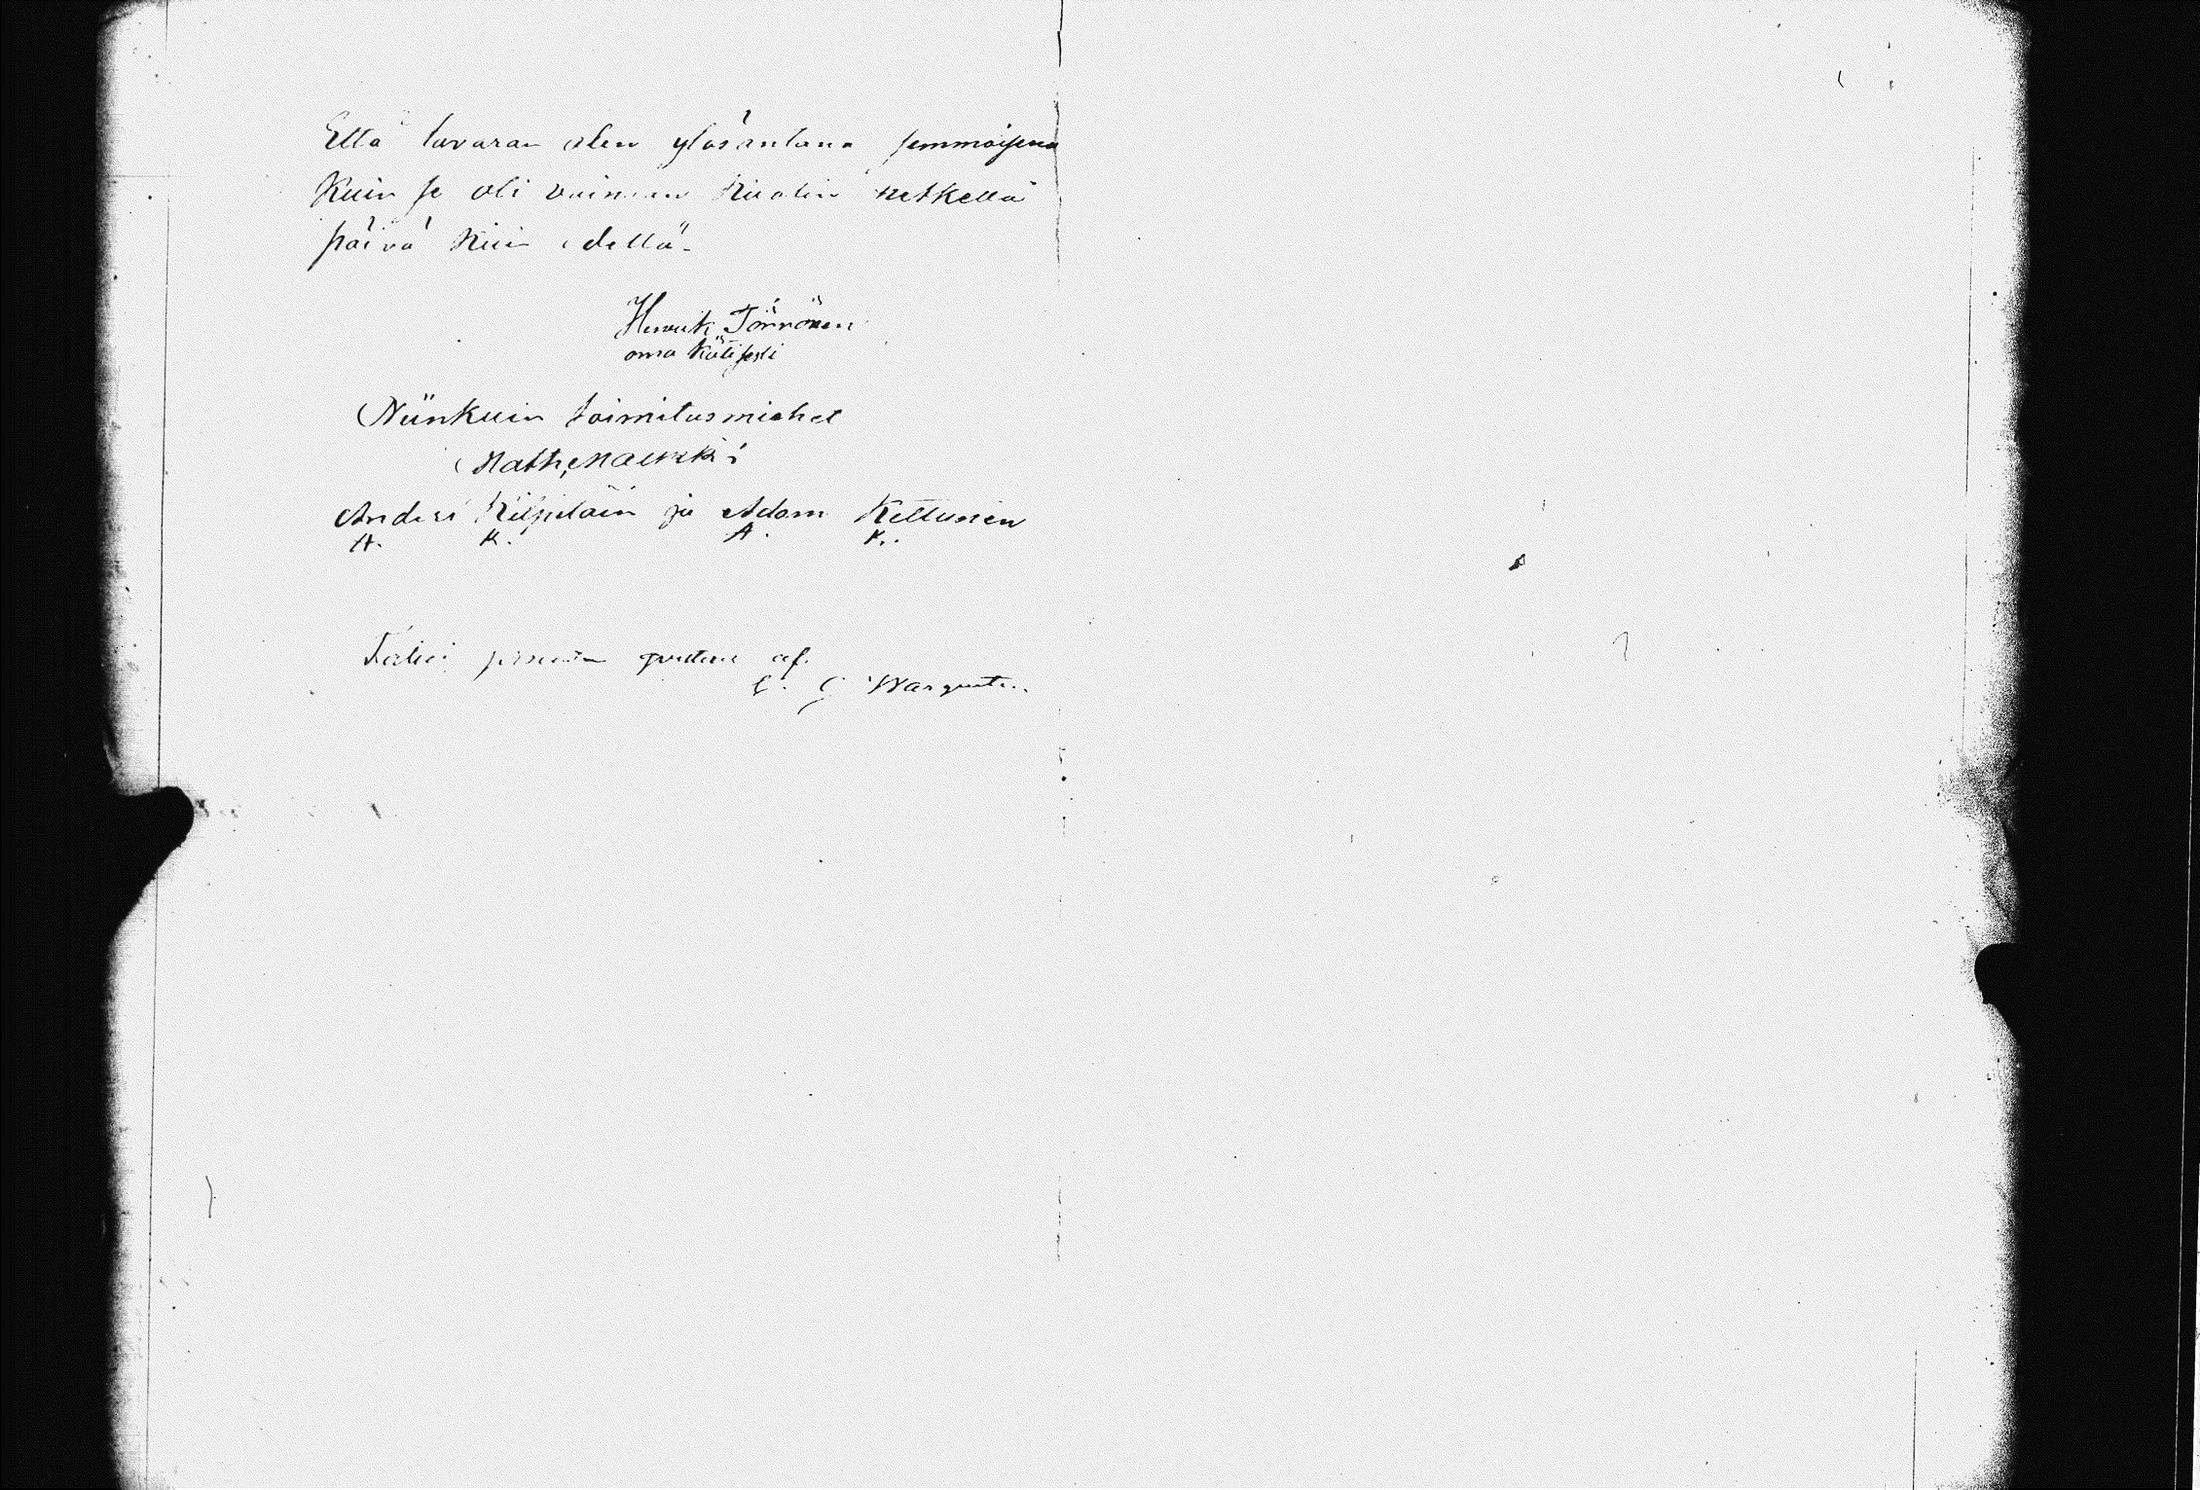 Että tavaran olen ylösantana semmoisena
Kuin se oli vaimoin Kuolin hetkellä
päivä Kuin edellä.
Henrik Törrönen
oma Kätisesti
Niinkuin toimitusmiehet
Math, Maukki
Anders Kilpeläin ja Adam Kettunen
A. K. A. K.
af.
C. G Wargentin